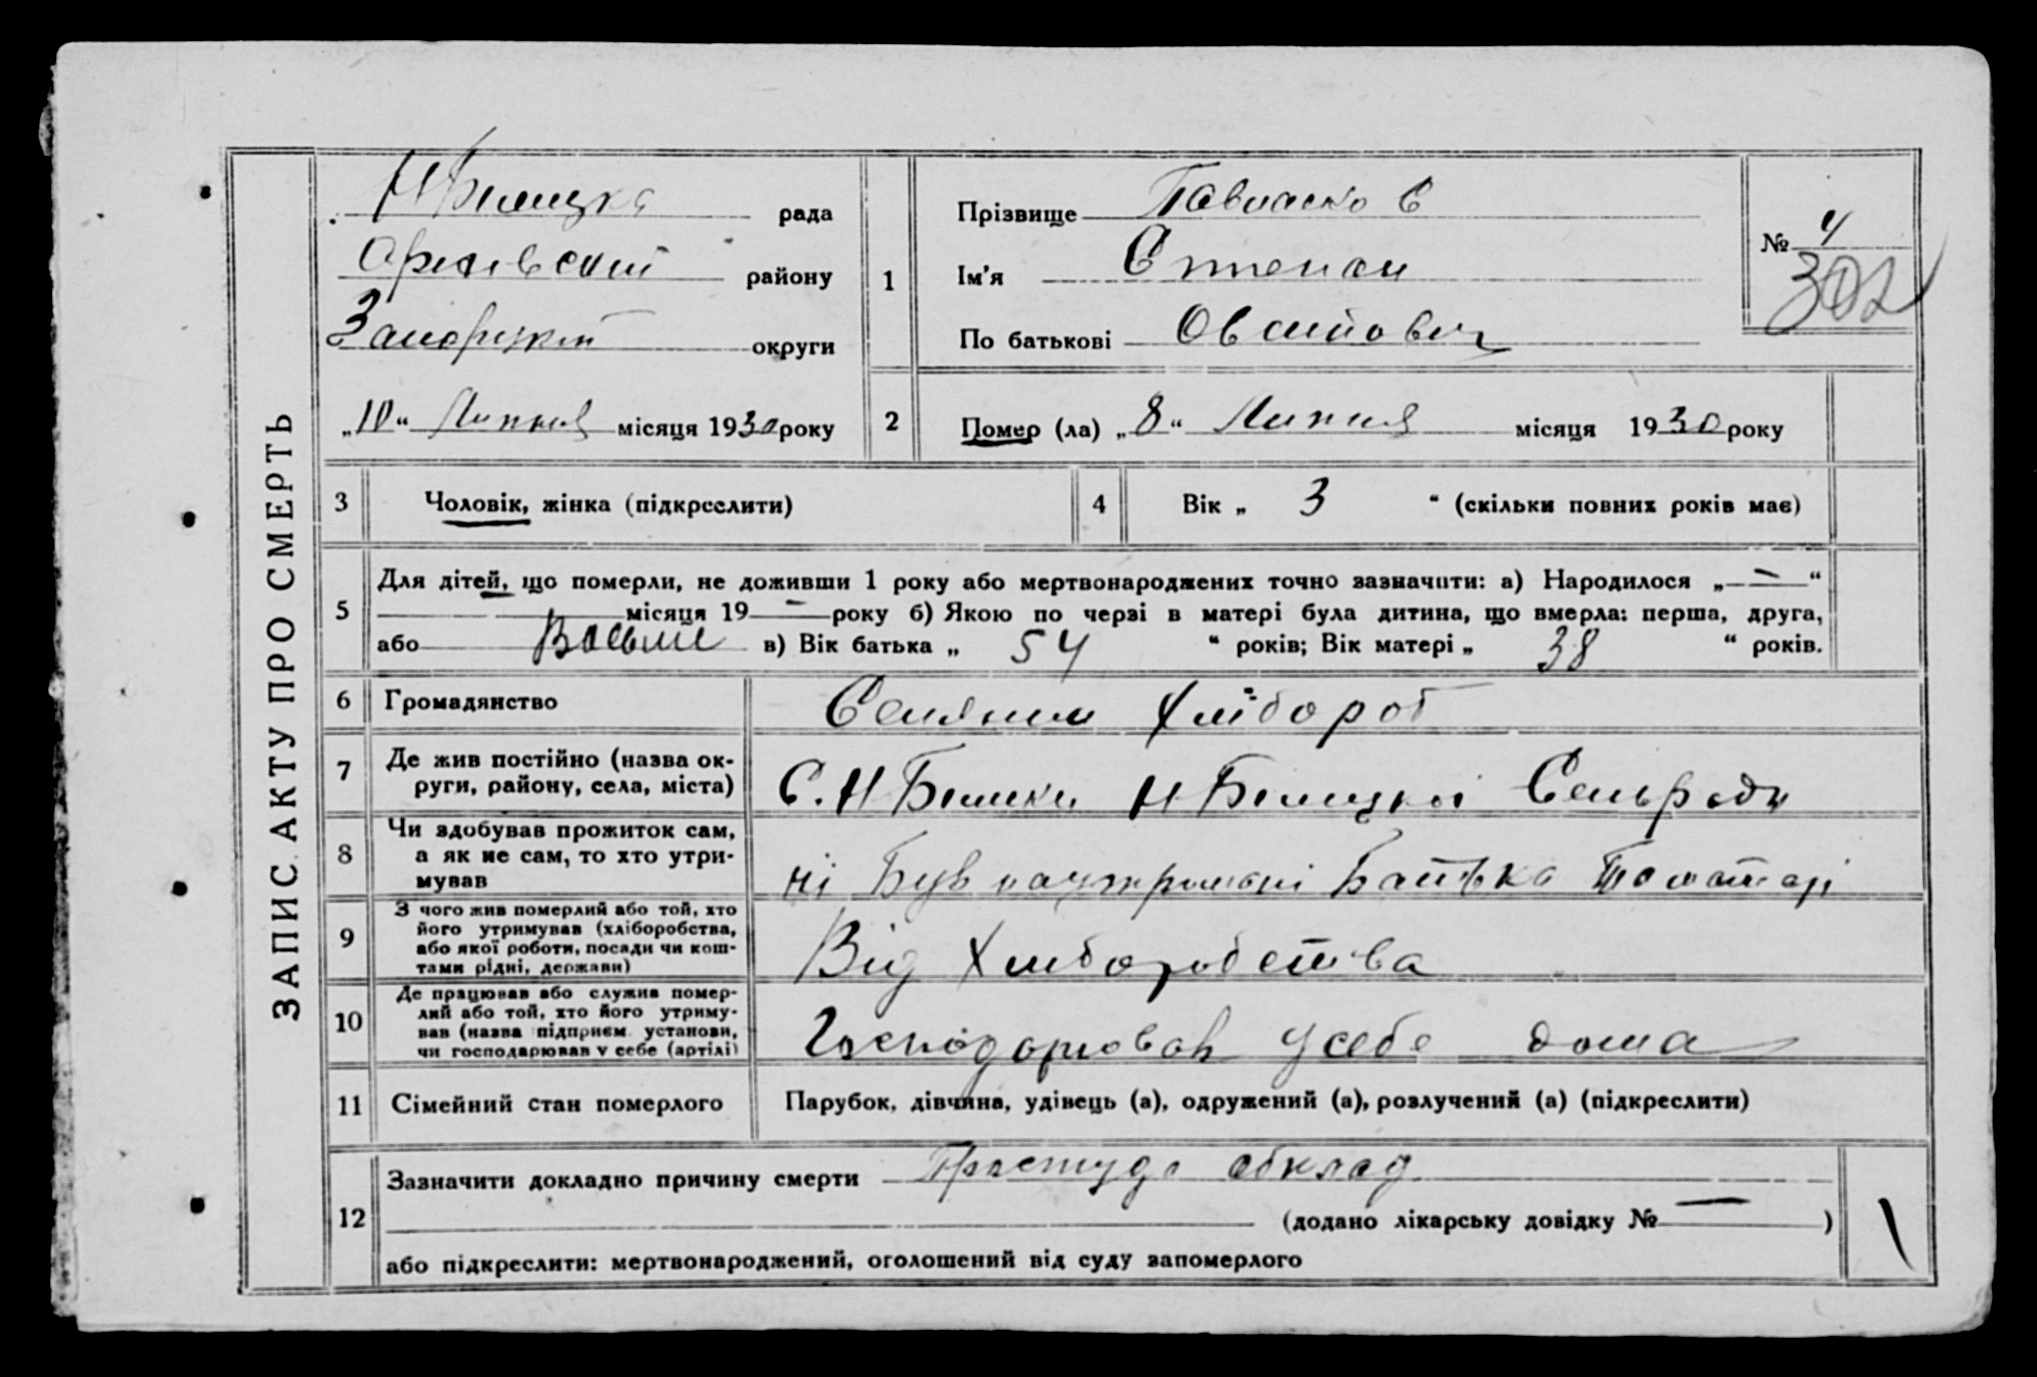 ЗАПИС АКТУ ПРО СМЕРТЬ
НБилицка рада
району
округи
„10“ Липня місяця 1930 року
1
Прізвище Павленко Є
Ім'я Степан
По батькові
№ 4
302
2
Помер (ла) „8“ Липня місяця 1930 року
3 Чоловік, жінка (підкреслити)
4 Вік „ 3 “ (скільки повних років має)
5 Для дітей, що померли, не доживши 1 року або мертвонароджених точно зазначити: а) Народилося „—“
місяця 19— року б) Якою по черзі в матері була дитина, що вмерла: перша, друга,
або в) Вік батька „ 54 “ років; Вік матері „ 38 “ років.
6 Громадянство Селянин Хлїбороб
7 Де жив постійно (назва ок-
руги, району, села, міста)
С. Н Билики Н Билицкоі Сельради
8 Чи здобував прожиток сам,
а як не сам, то хто утри-
мував
ні Був Батька
9 З чого жив померлий або той, хто
його утримував (хліборобства,
або якої роботи, посади чи кош-
тами рідні, держави)
Від Хлиборобства
10 Де працював або служив помер-
лий або той, хто його утриму-
вав (назва підприєм. установи,
чи господарював у себе (артілі)
Господарював у себе дома
11 Сімейний стан померлого Парубок, дівчина, удівець (а), одружений (а), розлучений (а) (підкреслити)
12 Зазначити докладно причину смерти Простуда обклад
(додано лікарську довідку № — )
або підкреслити: мертвонароджений, оголошений від суду запомерлого